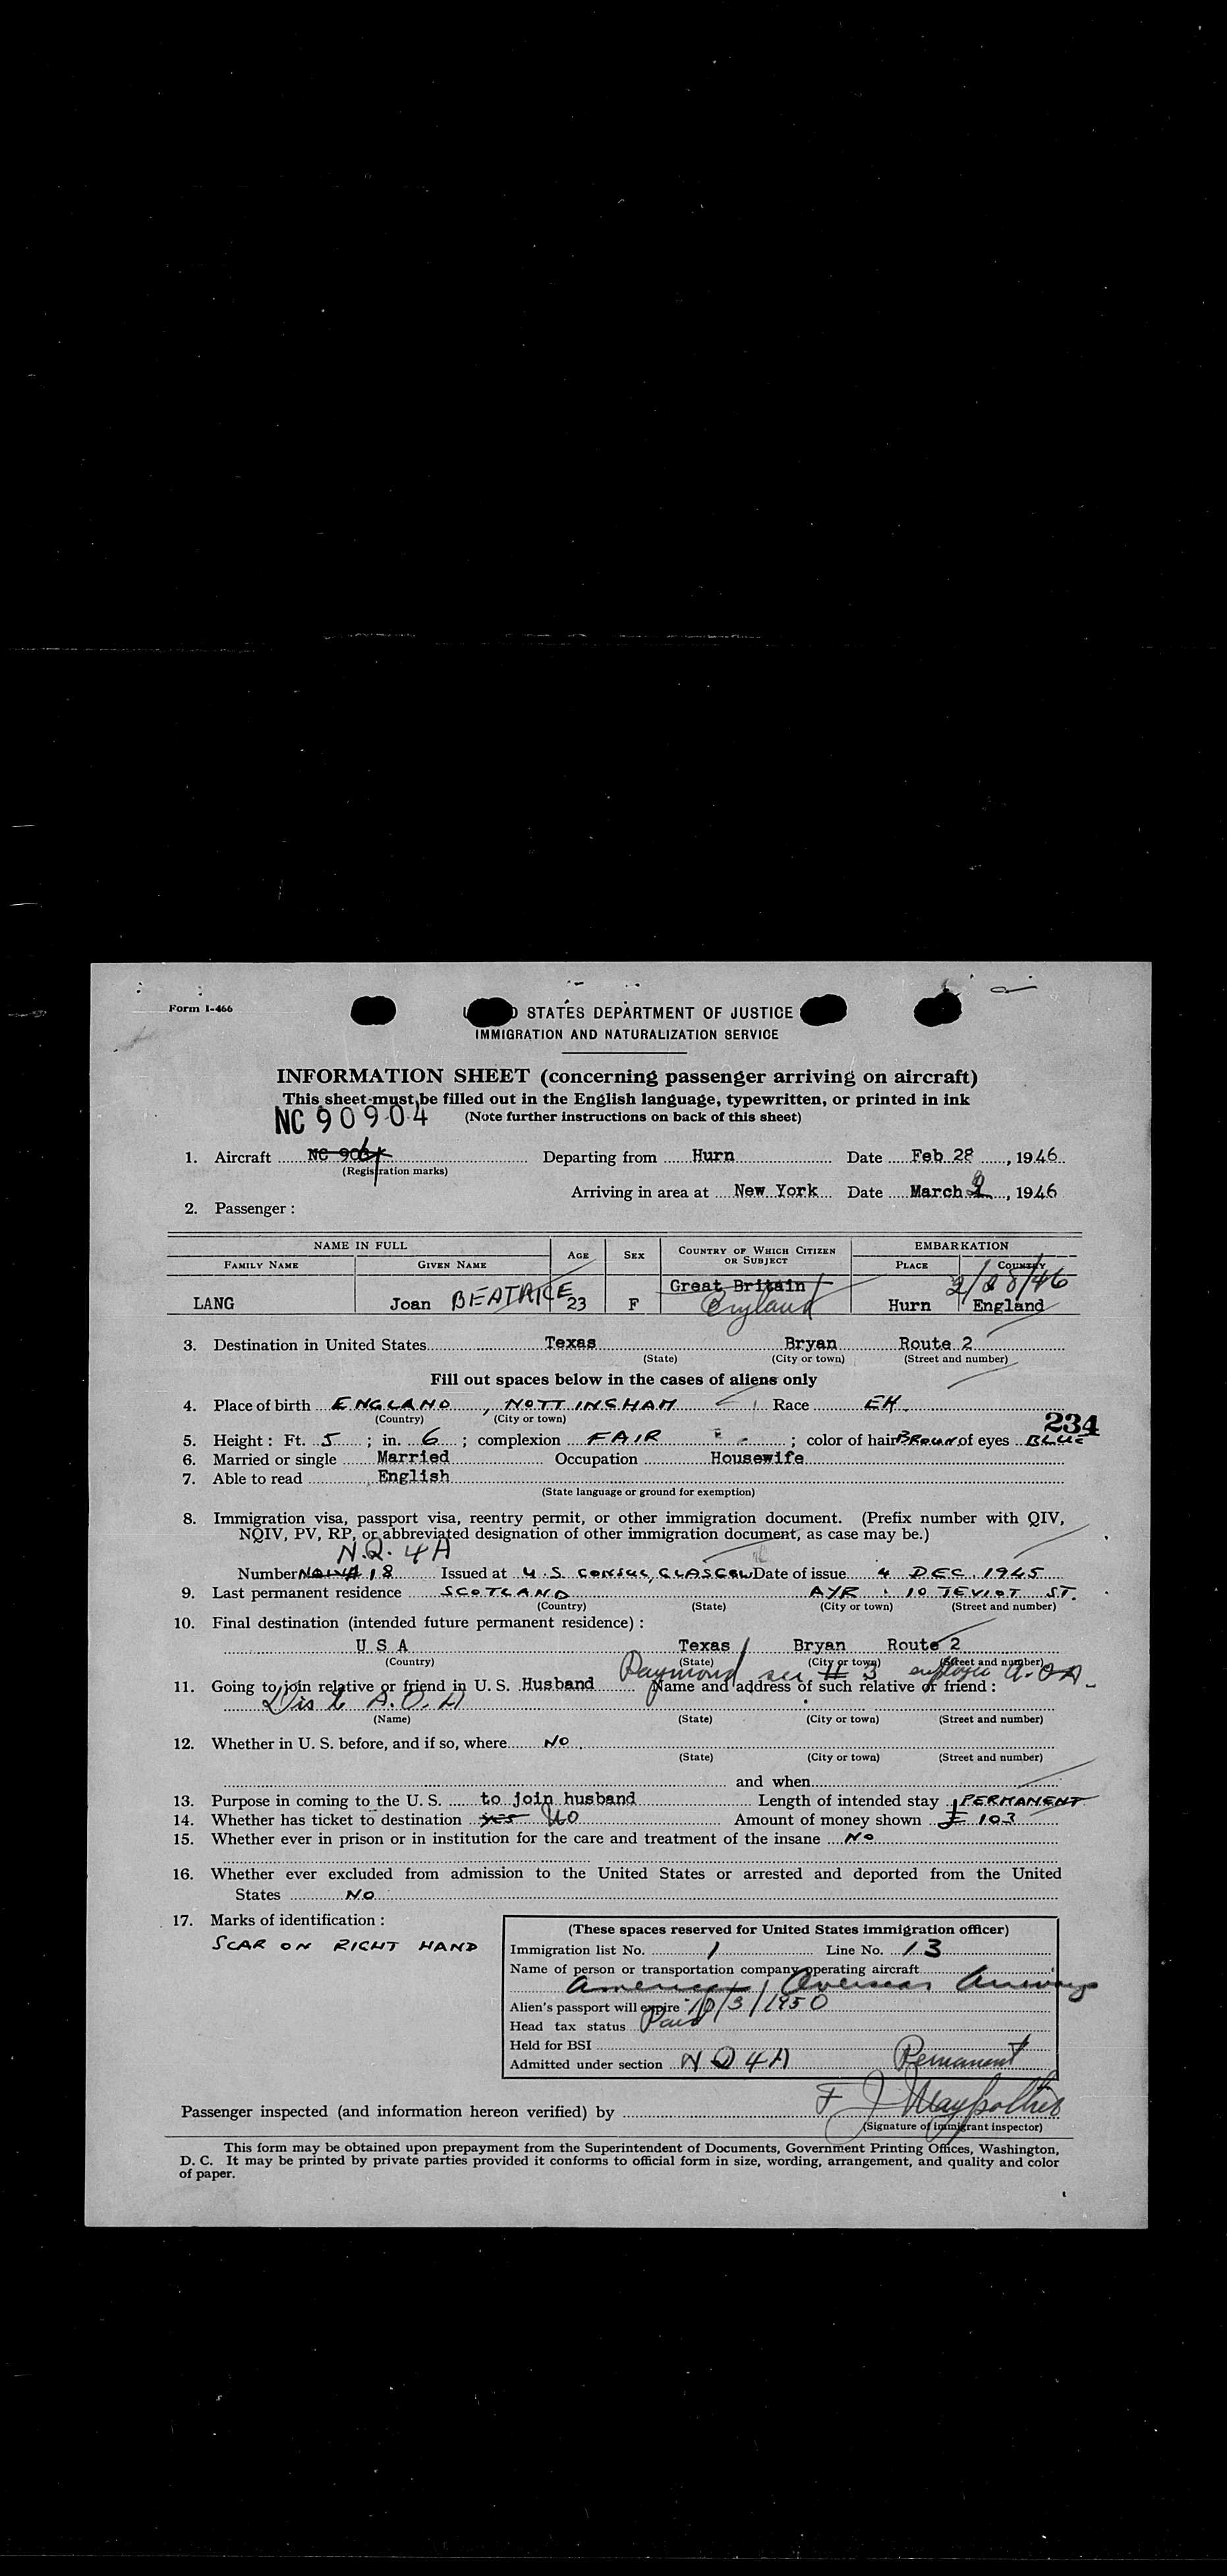 Form I-466
STATES DEPARTMENT OF JUSTICE
IMMIGRATION AND NATURALIZATION SERVICE
INFORMATION SHEET (concerning passenger arriving on aircraft)
This sheet must be filled out in the English language, typewritten, or printed in ink
NC 90904 (Note further instructions on back of this sheet)
1. Aircraft Departing from Hurn Date Feb 28, 1946
(Registration marks)
Arriving in area at New York Date March 2, 1946
2. Passenger:
NAME IN FULL AGE SEX COUNTRY OF WHICH CITIZEN OR SUBJECT EMBARKATION
FAMILY NAME GIVEN NAME PLACE COUNTRY
Great Britain 2/28/46
LANG Joan BEATRICE 23 F England Hurn England
3. Destination in United States Texas Bryan Route 2
(State) (City or town) (Street and number)
Fill out spaces below in the cases of aliens only
4. Place of birth ENGLAND, NOTTINGHAM Race
(Country) (City or town)
234
5. Height: Ft. 5; in. 6; complexion FAIR; color of hair BROWN of eyes BLUE
6. Married or single Married Occupation Housewife
7. Able to read English
(State language or ground for exemption)
8. Immigration visa, passport visa, reentry permit, or other immigration document. (Prefix number with QIV,
NQIV, PV, RP, or abbreviated designation of other immigration document, as case may be.)
N.Q. 4A
Number 18 Issued at U.S. CONSUL, GLASGOW Date of issue 4 DEC. 1945
9. Last permanent residence SCOTLAND AYR. 10 TEVIOT ST.
(Country) (State) (City or town) (Street and number)
10. Final destination (intended future permanent residence):
U S A Texas Bryan Route 2
(Country) (State) (City or town) (Street and number)
Raymond # 3 employee A.O.A.
11. Going to join relative or friend in U. S. Husband Name and address of such relative or friend:
A.O.A
(Name) (State) (City or town) (Street and number)
12. Whether in U. S. before, and if so, where NO.
(State) (City or town) (Street and number)
and when
13. Purpose in coming to the U. S. to join husband Length of intended stay PERMANENT
14. Whether has ticket to destination yes NO Amount of money shown £ 103
15. Whether ever in prison or in institution for the care and treatment of the insane NO
16. Whether ever excluded from admission to the United States or arrested and deported from the United
States NO
17. Marks of identification:
SCAR ON RIGHT HAND
(These spaces reserved for United States immigration officer)
Immigration list No. 1 Line No. 13
Name of person or transportation company operating aircraft
American Overseas Airways
Alien's passport will expire 10/3/1950
Head tax status Paid
Held for BSI
Admitted under section NQ4A Permanent
Passenger inspected (and information hereon verified) by F J
(Signature of immigrant inspector)
This form may be obtained upon prepayment from the Superintendent of Documents, Government Printing Offices, Washington,
D. C. It may be printed by private parties provided it conforms to official form in size, wording, arrangement, and quality and color
of paper.